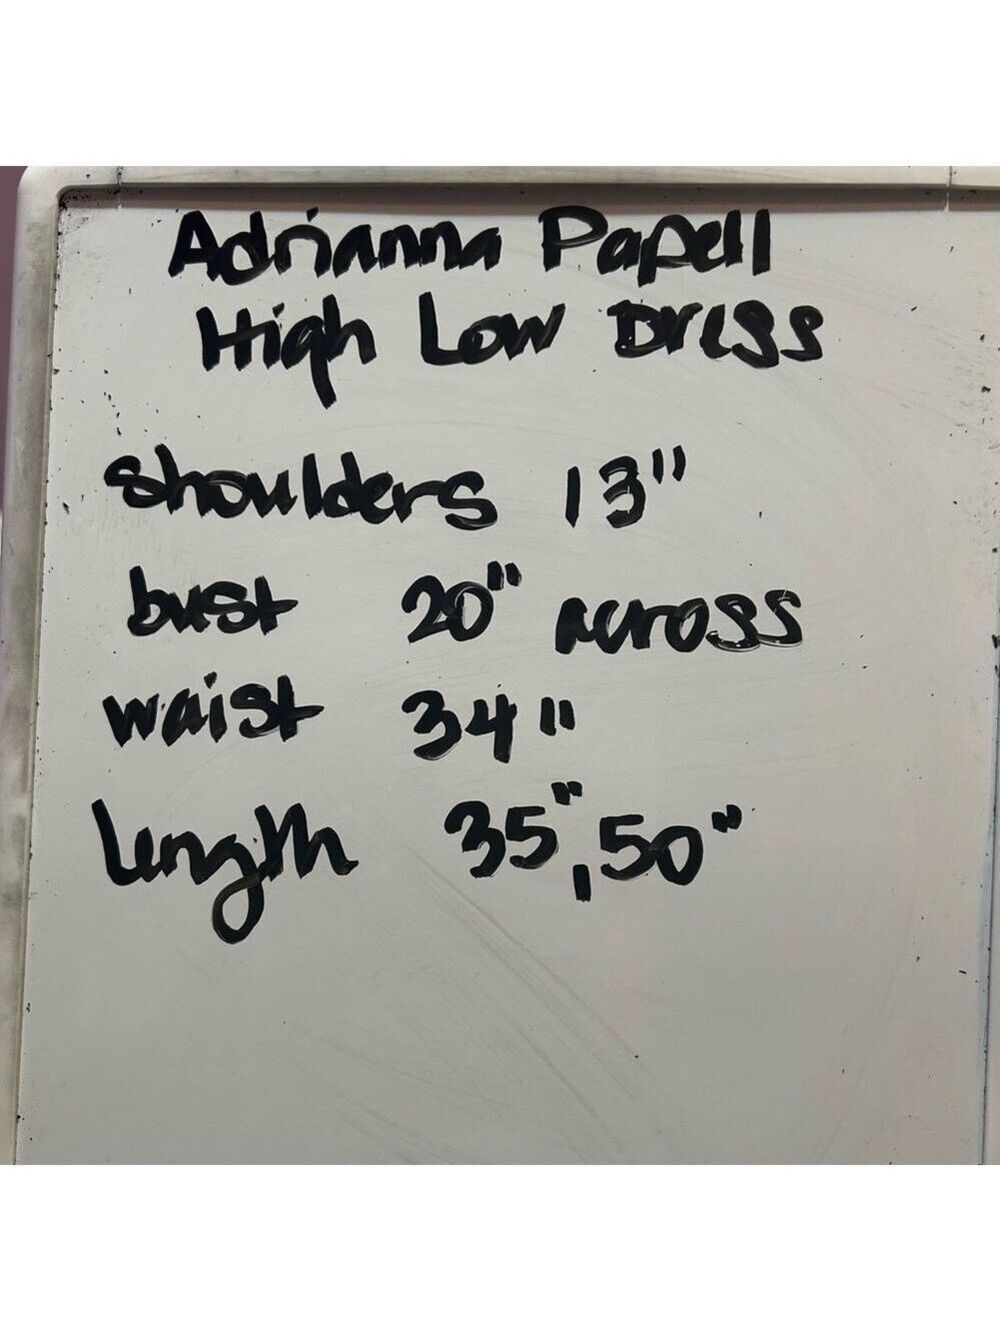 Adrianna Papell
High Low Dress
shoulders 13"
bust 20" across
waist 34"
length 35", 50"